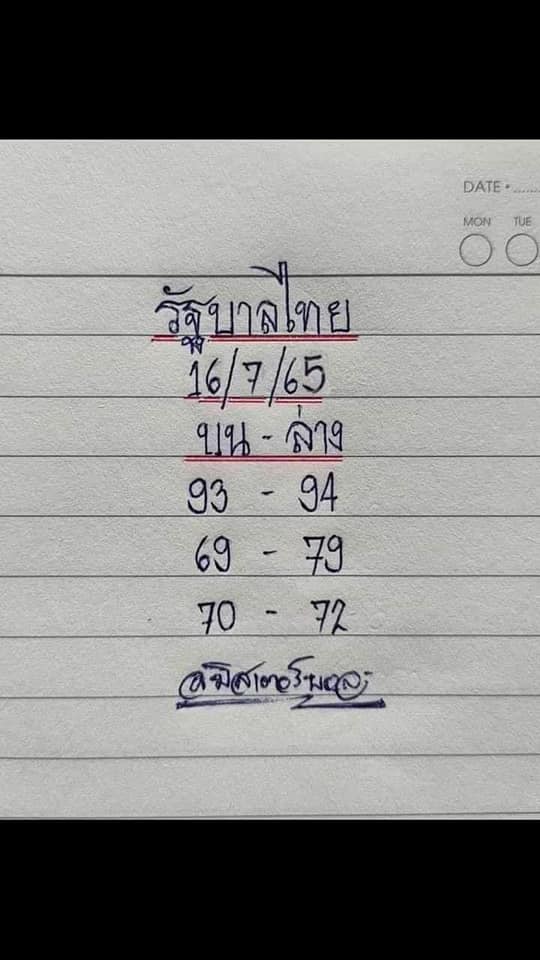 DATE • ......
MON TUE
รัฐบาลไทย
16/7/65
บน - ล่าง
93 - 94
69 - 79
70 - 72